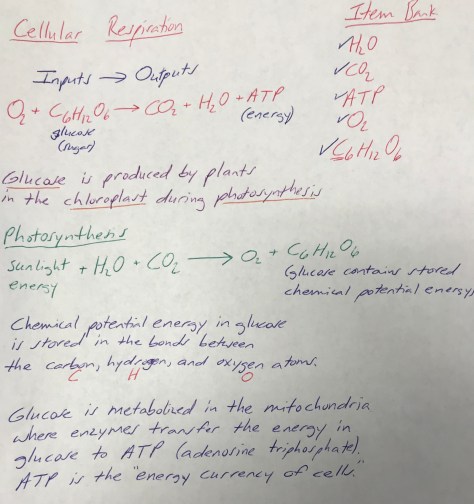 Cellular Respiration
Inputs → Outputs
O₂ + C₆H₁₂O₆ → CO₂ + H₂O + ATP
glucose (energy)
(sugar)
Item Bank
✓H₂O
✓CO₂
✓ATP
✓O₂
✓C₆H₁₂O₆
Glucose is produced by plants
in the chloroplast during photosynthesis
Photosynthesis
sunlight + H₂O + CO₂ → O₂ + C₆H₁₂O₆
energy
(glucose contains stored
chemical potential energy)
Chemical potential energy in glucose
is stored in the bonds between
the carbon, hydrogen, and oxygen atoms.
C H O
Glucose is metabolized in the mitochondria
where enzymes transfer the energy in
glucose to ATP (adenosine triphosphate).
ATP is the "energy currency of cells."